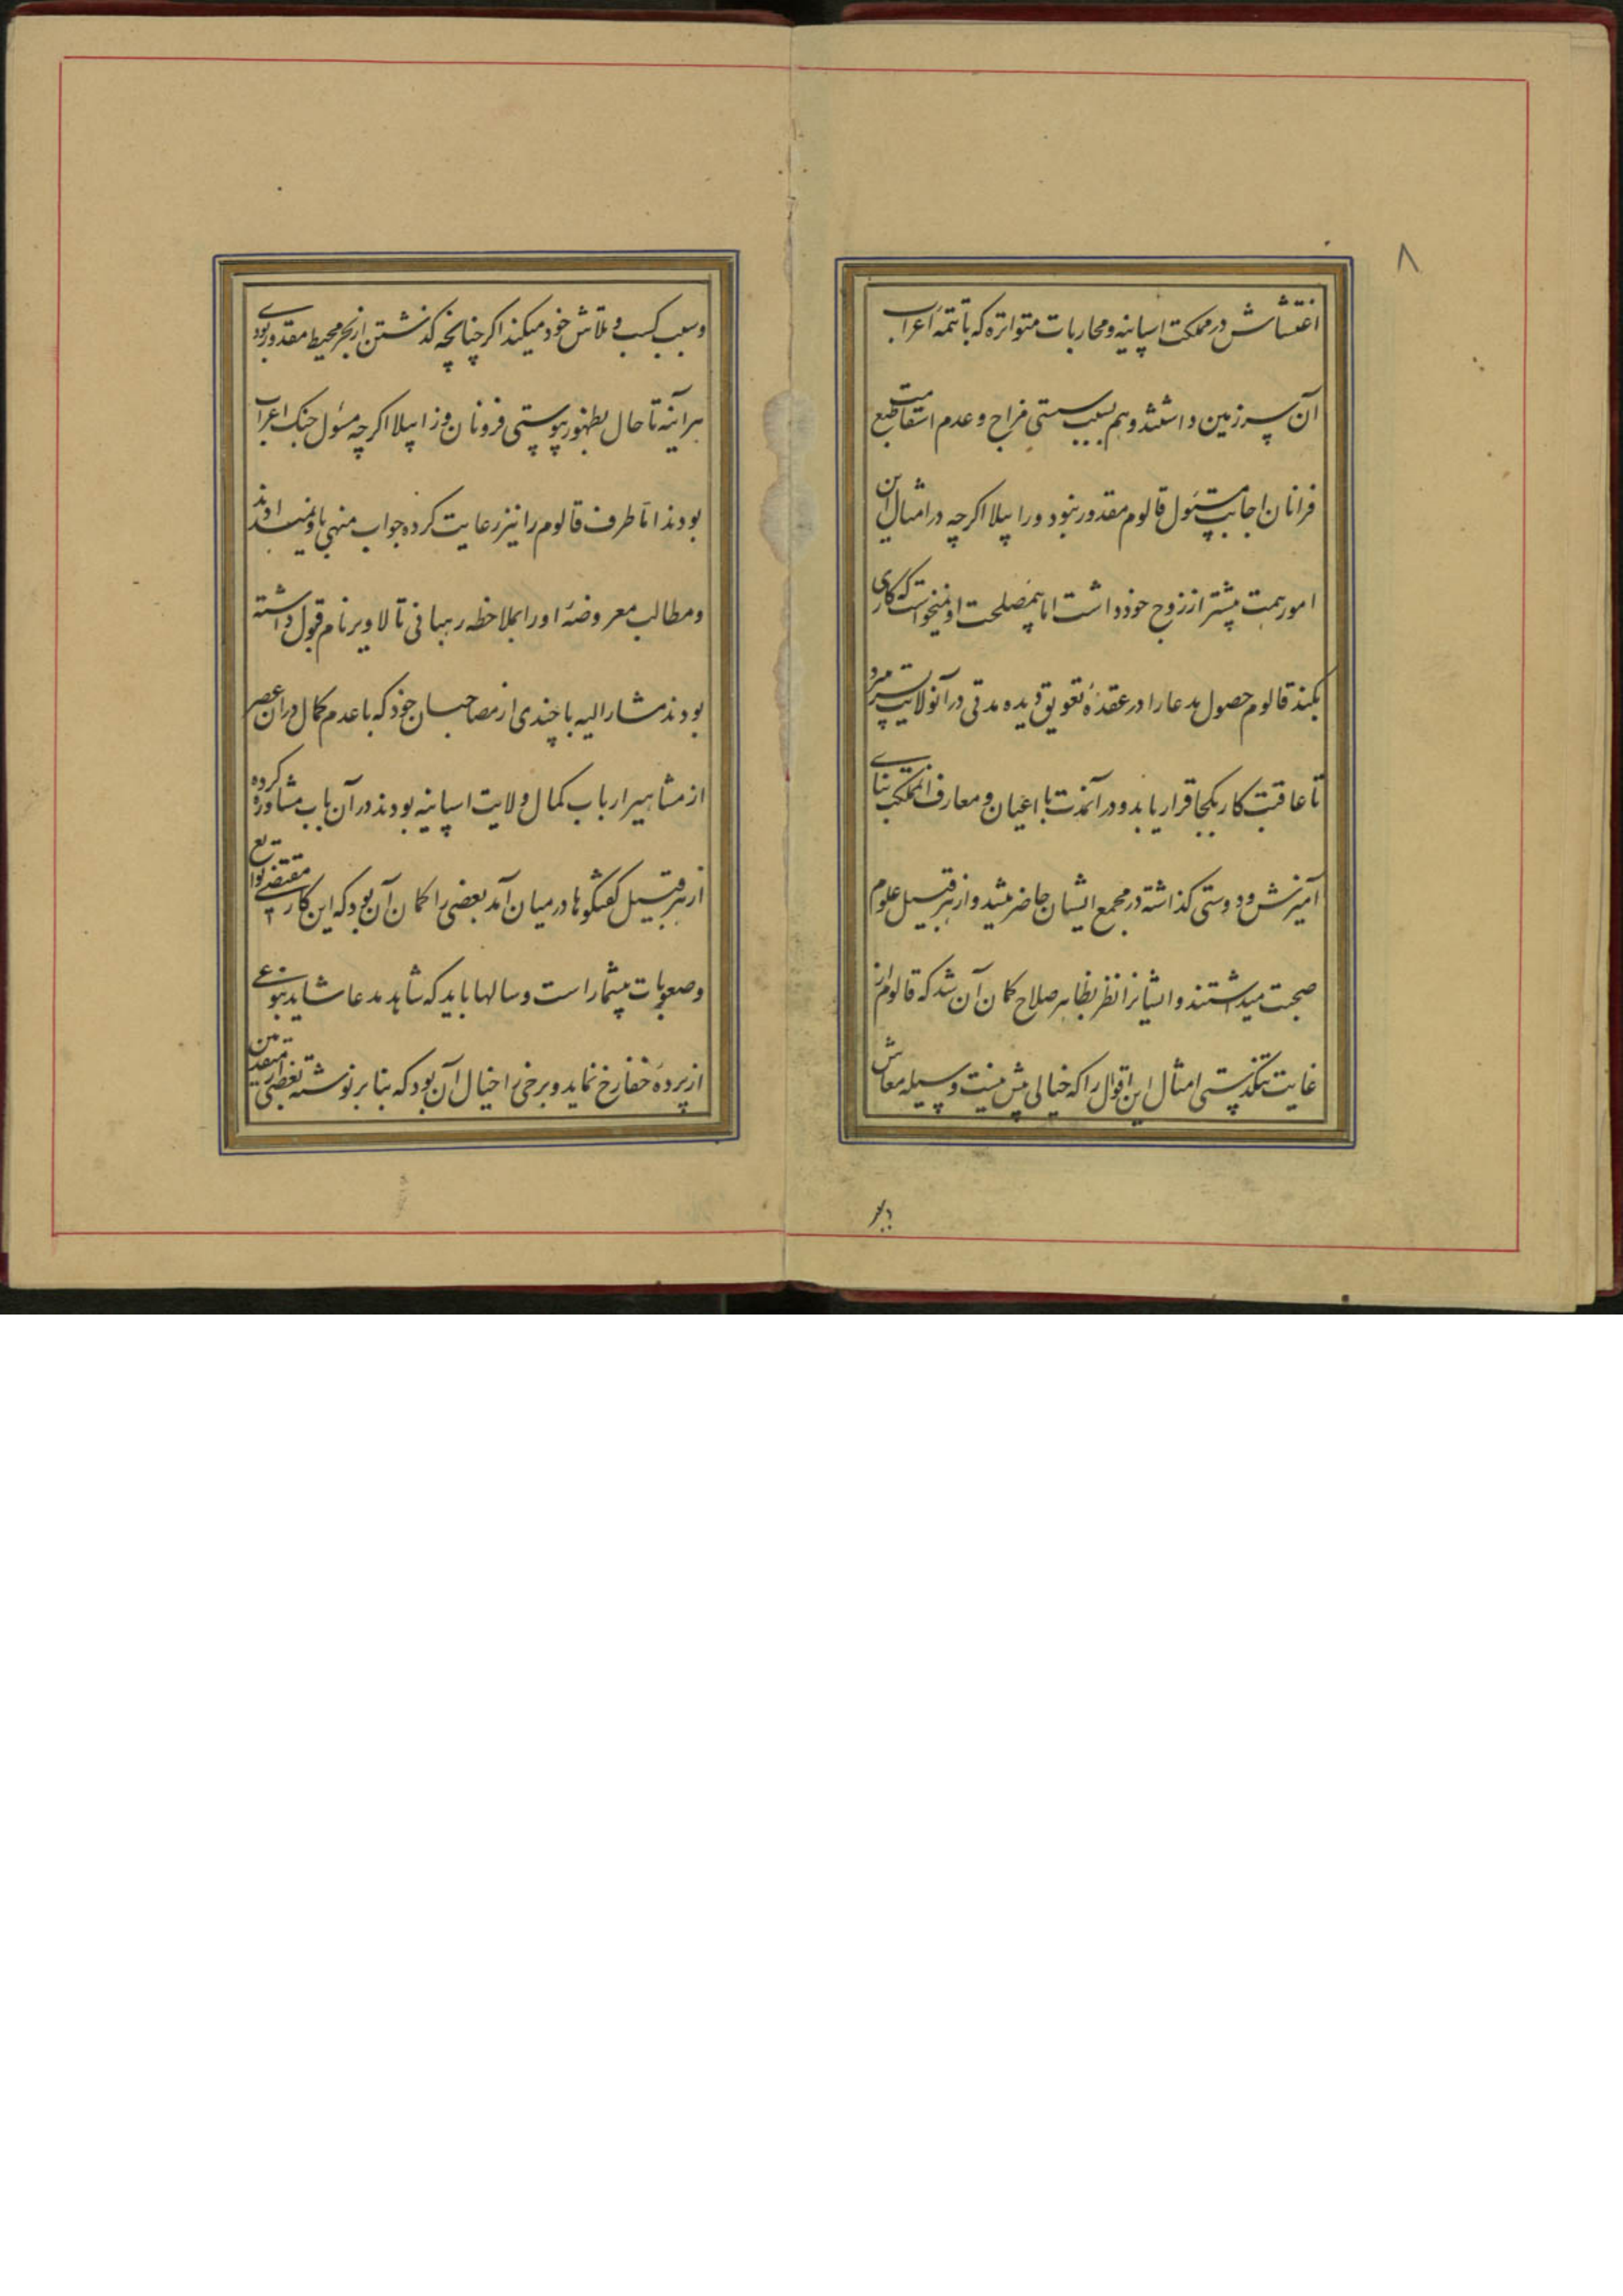 ۸
اغتشاش در مملکت اسپانیه و محاربات متواتره که با تتمه اعراب
آن سرزمین داشتند و هم بسبب سستی مزاج و عدم استقامت طبع
فرانان اجابت مسئول قالوم مقدور نبود و رابیلا اگرچه در امثال این
امور همت پیشتر از زوج خود داشت اما بی مصلحت او نمیخواست که کاری
بکند قالوم حصول مدعا را در عقدهٔ تعویق دیده مدتی در آنولایت بسر میبرد
تا عاقبت کار بکجا قرار یابد و در آنمدت با اعیان و معارف آنمملکت بنای
آمیزش و دوستی گذاشته در مجمع ایشان حاضر میشد و از هر قبیل علوم
صحبت میداشتند و ایشانرا نظر بظاهر صلاح گمان آن شد که قالوم از
غایت تنگدستی امثال این اقوال را که خیالی بیش نیست وسیله معاش
و سبب کسب و تلاش خود میکند اگر چنانچه گذشتن از بحر محیط مقدور بودی
هرآینه تا حال بظهور پیوستی فرونان و زابیلا اگرچه مسئول جنگ اعراب
بودند اما طرف قالوم را نیز رعایت کرده جواب منهی باو نمیدادند
و مطالب معروضهٔ او را بملاحظه رهبانی تالاویر نام قبول داشته
بودند مشارالیه با چندی از مصاحبان خود که با عدم کمال در آن عصر
از مشاهیر ارباب کمال ولایت اسپانیه بودند در آن باب مشاوره کرده
از هر قبیل گفتگوها در میان آمد بعضی را گمان آن بود که این کار مقتضی توابع
و صعوبات بیشمار است و سالها باید که شاهد مدعا شاید بنوعی
از پردهٔ خفا رخ نماید و برخی را خیال آن بود که بنا بر نوشته بعضی از متقدمین